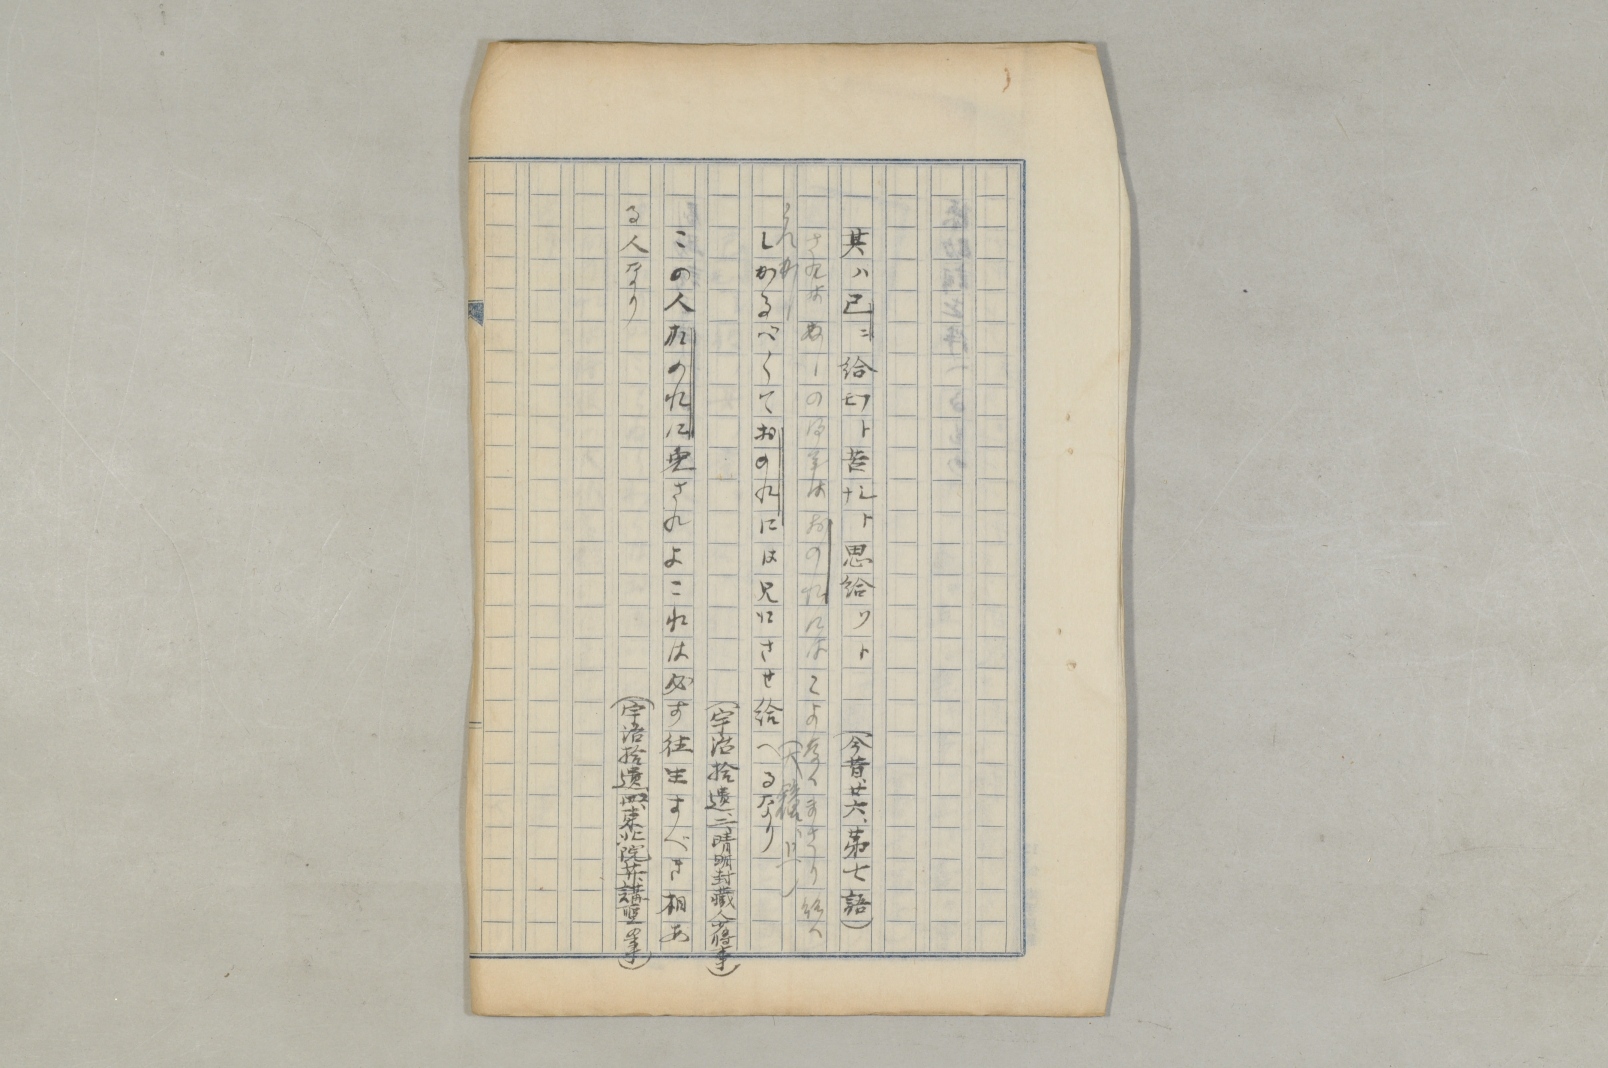 其ハ己ニ給切ト苦ナシト思給リト （今昔、廿六、第七語）
おのれにはこよなくまさり給へ
（大鏡、
しかるべくておのれには兄にさせ給へるなり
（宇治拾遺、二、晴明封蔵人少将事）
この人おのれに具されよこれは必す往生すべき相あ
る人なり （宇治拾遺、四、東北院菩提講聖の事）